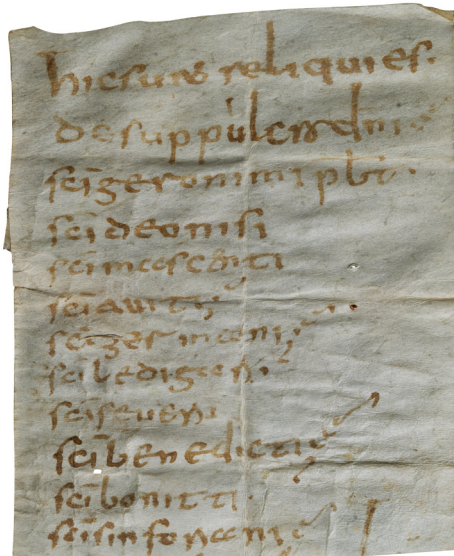 hic sunt reliquies.
de suppulcru dni
sci geronimi pbi.
sci deonisi
sci
sci auiti
sci germani
sci ledigari
sci seueri
sci benedicti
sci bonitti.
sci sinforiani